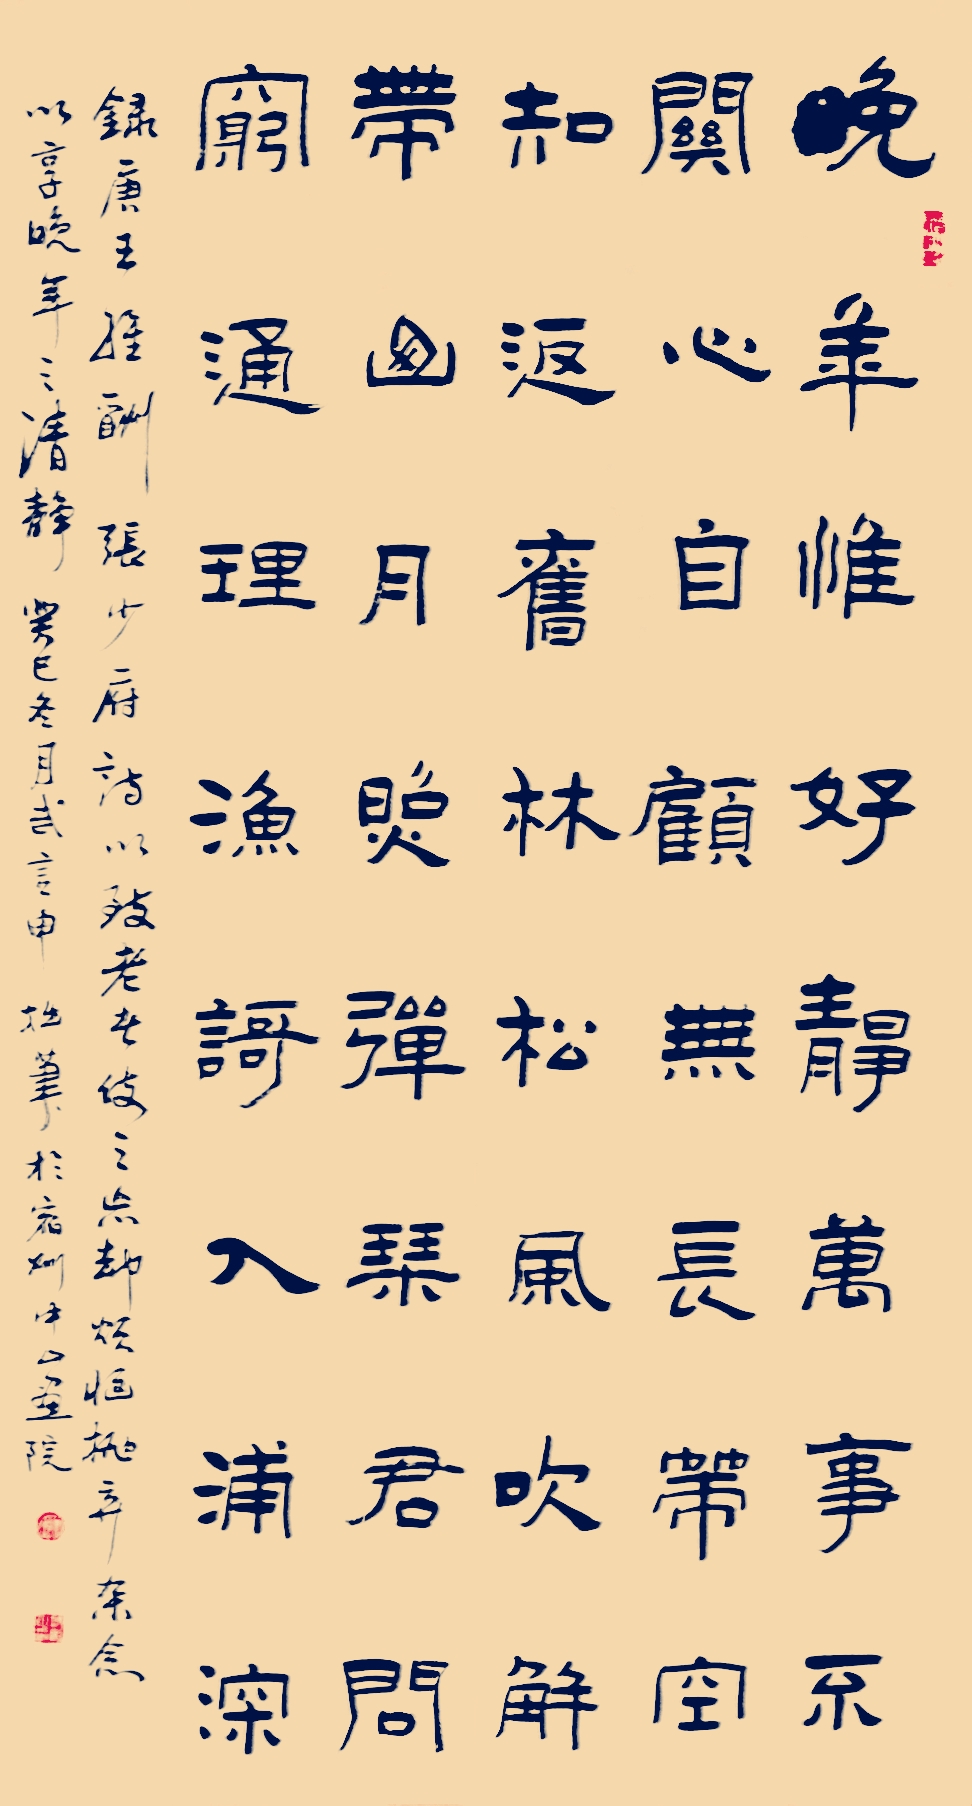 晚年惟好靜萬事不
關心自顧無長策空
知返舊林松風吹解
帶山月照彈琴君問
窮通理漁謌入浦深
錄唐王維酬張少府詩以致老者使之忘却煩惱拋弃杂念
以享晚年之清靜 癸巳冬月武言申 拙筆於宿州中山畫院